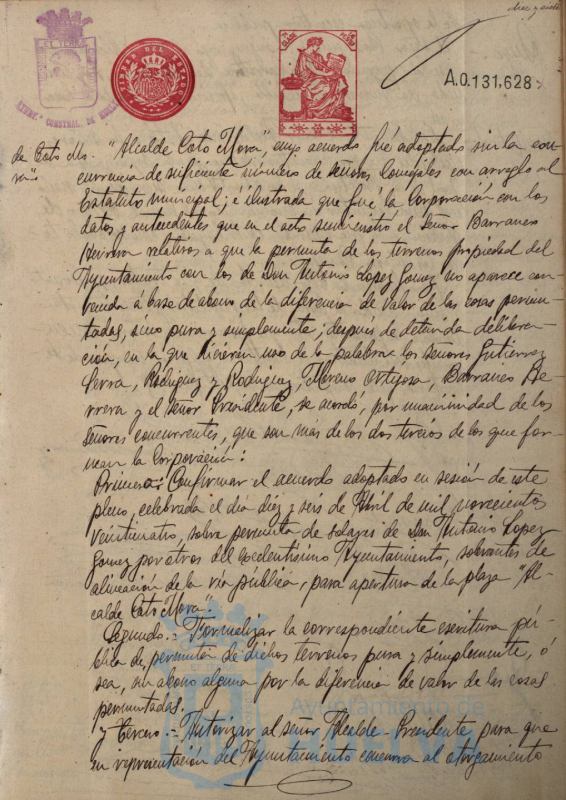 diez y siete
A.0.131,628
TIMBRE DEL ESTADO
AYUNT.º CONSTNAL. DE HUELVA
de Coto Mo-
ra"
"Alcalde Coto Mora", cuyo acuerdo fué adoptado sin la con-
currencia de suficiente número de señores Concejales con arreglo al
Estatuto municipal; é ilustrada que fué la Corporación con los
datos y antecedentes que en el acto suministró el señor Barranco
Herrera relativos a que la permuta de los terrenos propiedad del
Ayuntamiento con los de Don Antonio Lopez Gomez no aparece con-
venida a base de abono de la diferencia de valor de las cosas permu-
tadas, sino pura y simplemente; después de detenida delibera-
ción, en la que hicieron uso de la palabra los señores Gutierrez
Serra, Rodriguez y Rodriguez, Moreno Ortega, Barranco He-
rrera y el señor Presidente, se acordó, por unanimidad de los
señores concurrentes, que son más de los dos tercios de los que for-
man la Corporación:
Primero: Confirmar el acuerdo adoptado en sesión de este
pleno, celebrada el día diez y seis de Abril de mil novecientos
veinticuatro, sobre permuta de solares de Don Antonio Lopez
Gomez por otros del Excelentísimo Ayuntamiento, sobrantes de
alineación de la vía pública, para apertura de la plaza "Al-
calde Coto Mora".
Segundo.- Formalizar la correspondiente escritura pú-
blica de permuta de dichos terrenos pura y simplemente, ó
sea, sin abono alguno por la diferencia de valor de las cosas
permutadas.
Y Tercero.- Autorizar al señor Alcalde-Presidente para que
en representación del Ayuntamiento concurra al otorgamiento
Ayuntamiento de
Huelva